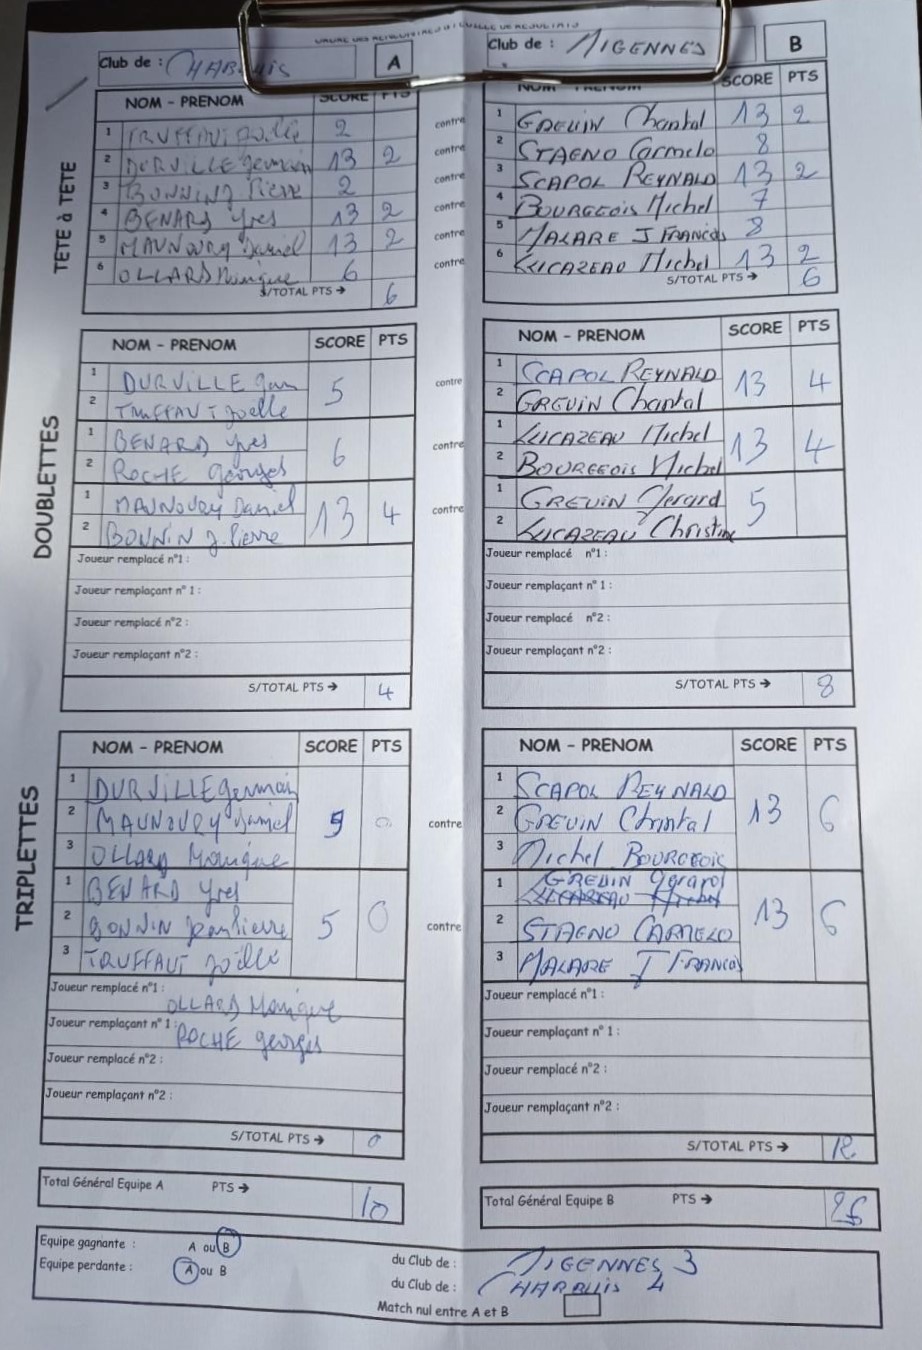 Club de : CHARBUIS A
Club de : MIGENNES B
NOM - PRENOM SCORE PTS
SCORE PTS
TÊTE à TÊTE
1 TRUFFAUT Joëlle 2 contre 1 GREUIN Chantal 13 2
2 DURVILLE germain 13 2 contre 2 STAGNO Carmelo 8
3 BONNIN J. Pierre 2 contre 3 SCAPOL REYNALD 13 2
4 BENARD Yves 13 2 contre 4 BOURGEOIS Michel 7
5 MAUNOURY Daniel 13 2 contre 5 MALARE J FRANCOIS 8
6 OLLARD Monique 6 contre 6 LUCAZEAU Michel 13 2
S/TOTAL PTS → 6
S/TOTAL PTS → 6
DOUBLETTES
NOM - PRENOM SCORE PTS
NOM - PRENOM SCORE PTS
1 DURVILLE
2 TRUFFAUT Joëlle
5
contre
1 SCAPOL REYNALD
2 GREUIN Chantal
13 4
1 BENARD Yves
2 ROCHE georges
6
contre
1 LUCAZEAU Michel
2 BOURGEOIS Michel
13 4
1 MAUNOURY Daniel
2 BONNIN J. Pierre
13 4
contre
1 GREUIN Gerard
2 LUCAZEAU Christine
5
Joueur remplacé n°1 :
Joueur remplaçant n° 1 :
Joueur remplacé n°2 :
Joueur remplaçant n°2 :
S/TOTAL PTS → 4
Joueur remplacé n°1 :
Joueur remplaçant n° 1 :
Joueur remplacé n°2 :
Joueur remplaçant n°2 :
S/TOTAL PTS → 8
TRIPLETTES
NOM - PRENOM SCORE PTS
NOM - PRENOM SCORE PTS
1 DURVILLE germain
2 MAUNOURY Daniel
3 OLLARD Monique
9 0
contre
1 SCAPOL REYNALD
2 GREUIN Chantal
3 Michel BOURGEOIS
13 6
1 BENARD Yves
2 BONNIN Jean Pierre
3 TRUFFAUT Joëlle
5 0
contre
1 GREUIN Gerard
2 STAGNO CARMELO
3 MALARE J FRANCOIS
13 6
Joueur remplacé n°1 : OLLARD Monique
Joueur remplaçant n° 1 : ROCHE georges
Joueur remplacé n°2 :
Joueur remplaçant n°2 :
S/TOTAL PTS → 0
Joueur remplacé n°1 :
Joueur remplaçant n° 1 :
Joueur remplacé n°2 :
Joueur remplaçant n°2 :
S/TOTAL PTS → 12
Total Général Equipe A PTS → 10
Total Général Equipe B PTS → 26
Equipe gagnante : A ou B du Club de : MIGENNES 3
Equipe perdante : A ou B du Club de : CHARBUIS 4
Match nul entre A et B